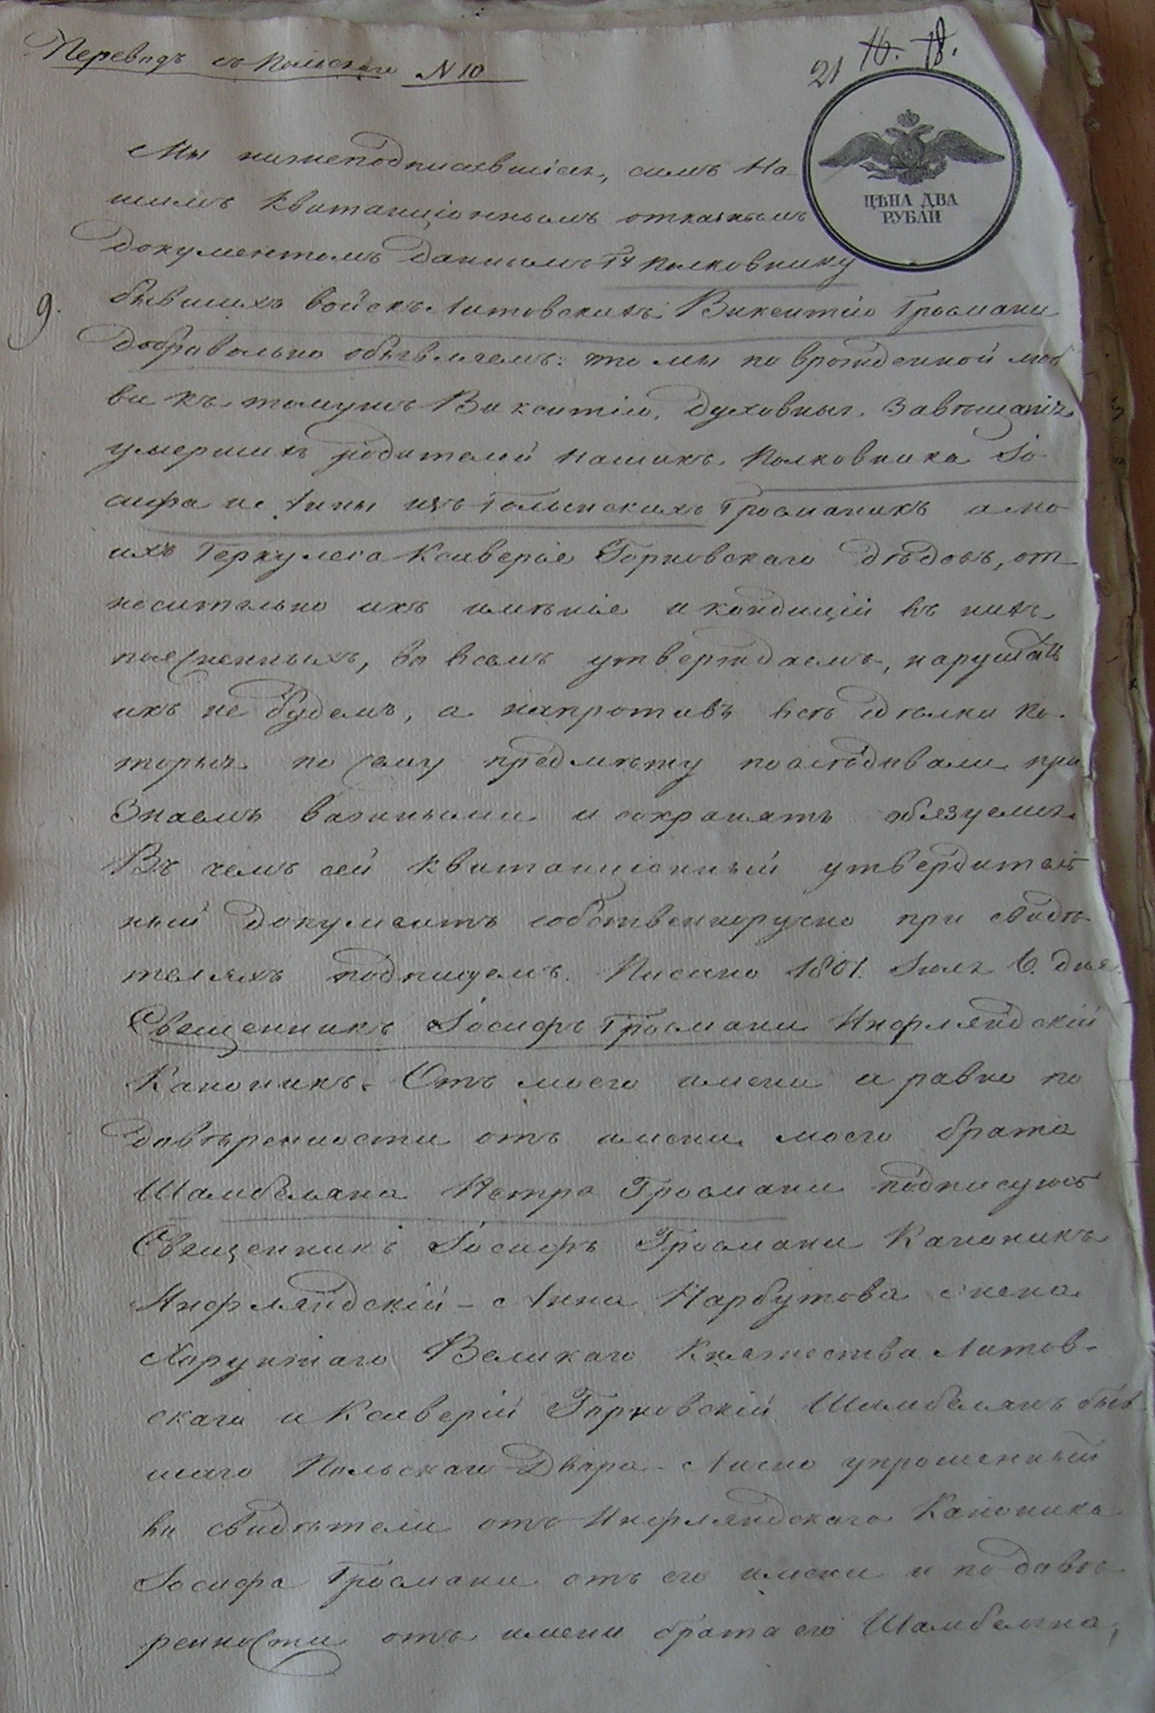 Переводъ съ Польскаго N 10
21 16. 18.
ЦѢНА ДВА
РУБЛИ
Мы нижеподписавшіеся, симъ На
шимъ Квитанціоннымъ
документомъ даннымъ Гну Полковнику
9.
бывшихъ войскъ Литовскихъ Викентію Гросмани
добровольно объявляемъ: что мы по врожденной люб
ви къ томужъ Викентію, духовныя Завѣщанія
умершихъ родителей нашихъ Полковника Іо
сифа и Анны изъ Гросманихъ а мо
ихъ Геркулеса Ксаверія Горновскаго дѣдовъ, от
носительно ихъ имѣнія и кондицій въ нихъ
поясненныхъ, во всемъ утверждаемъ, нарушать
ихъ не будемъ, а напротивъ всѣ сдѣлки ко
торыя по сему предмѣту послѣдовали при
знаемъ важными и сохранять обязуемся
Въ чемъ сей квитанціонный утвердитель
ный документъ собственноручно при свидѣ
теляхъ подпишемъ. Писано 1801. Іюля 6. дня.
Священникъ Іосифъ Гросмани Инфляндскій
Каноникъ. Отъ моего имени и равно по
довѣренности отъ имени моего брата
Шамбеляна Петра Гросмани подписуюсь
Священникъ Іосифъ Гросмани Каноникъ
Инфляндскій – Анна Нарбутова жена
Хорунжаго Великаго Княжества Литов-
скаго и Ксаверій Горновскій Шамбелянъ быв
шаго Польскаго Двора – упрошенный
въ свидѣтели отъ Инфляндскаго Каноника
Іосифа Гросмани отъ его имени и по довѣ
ренности отъ имени брата его Шамбеляна,